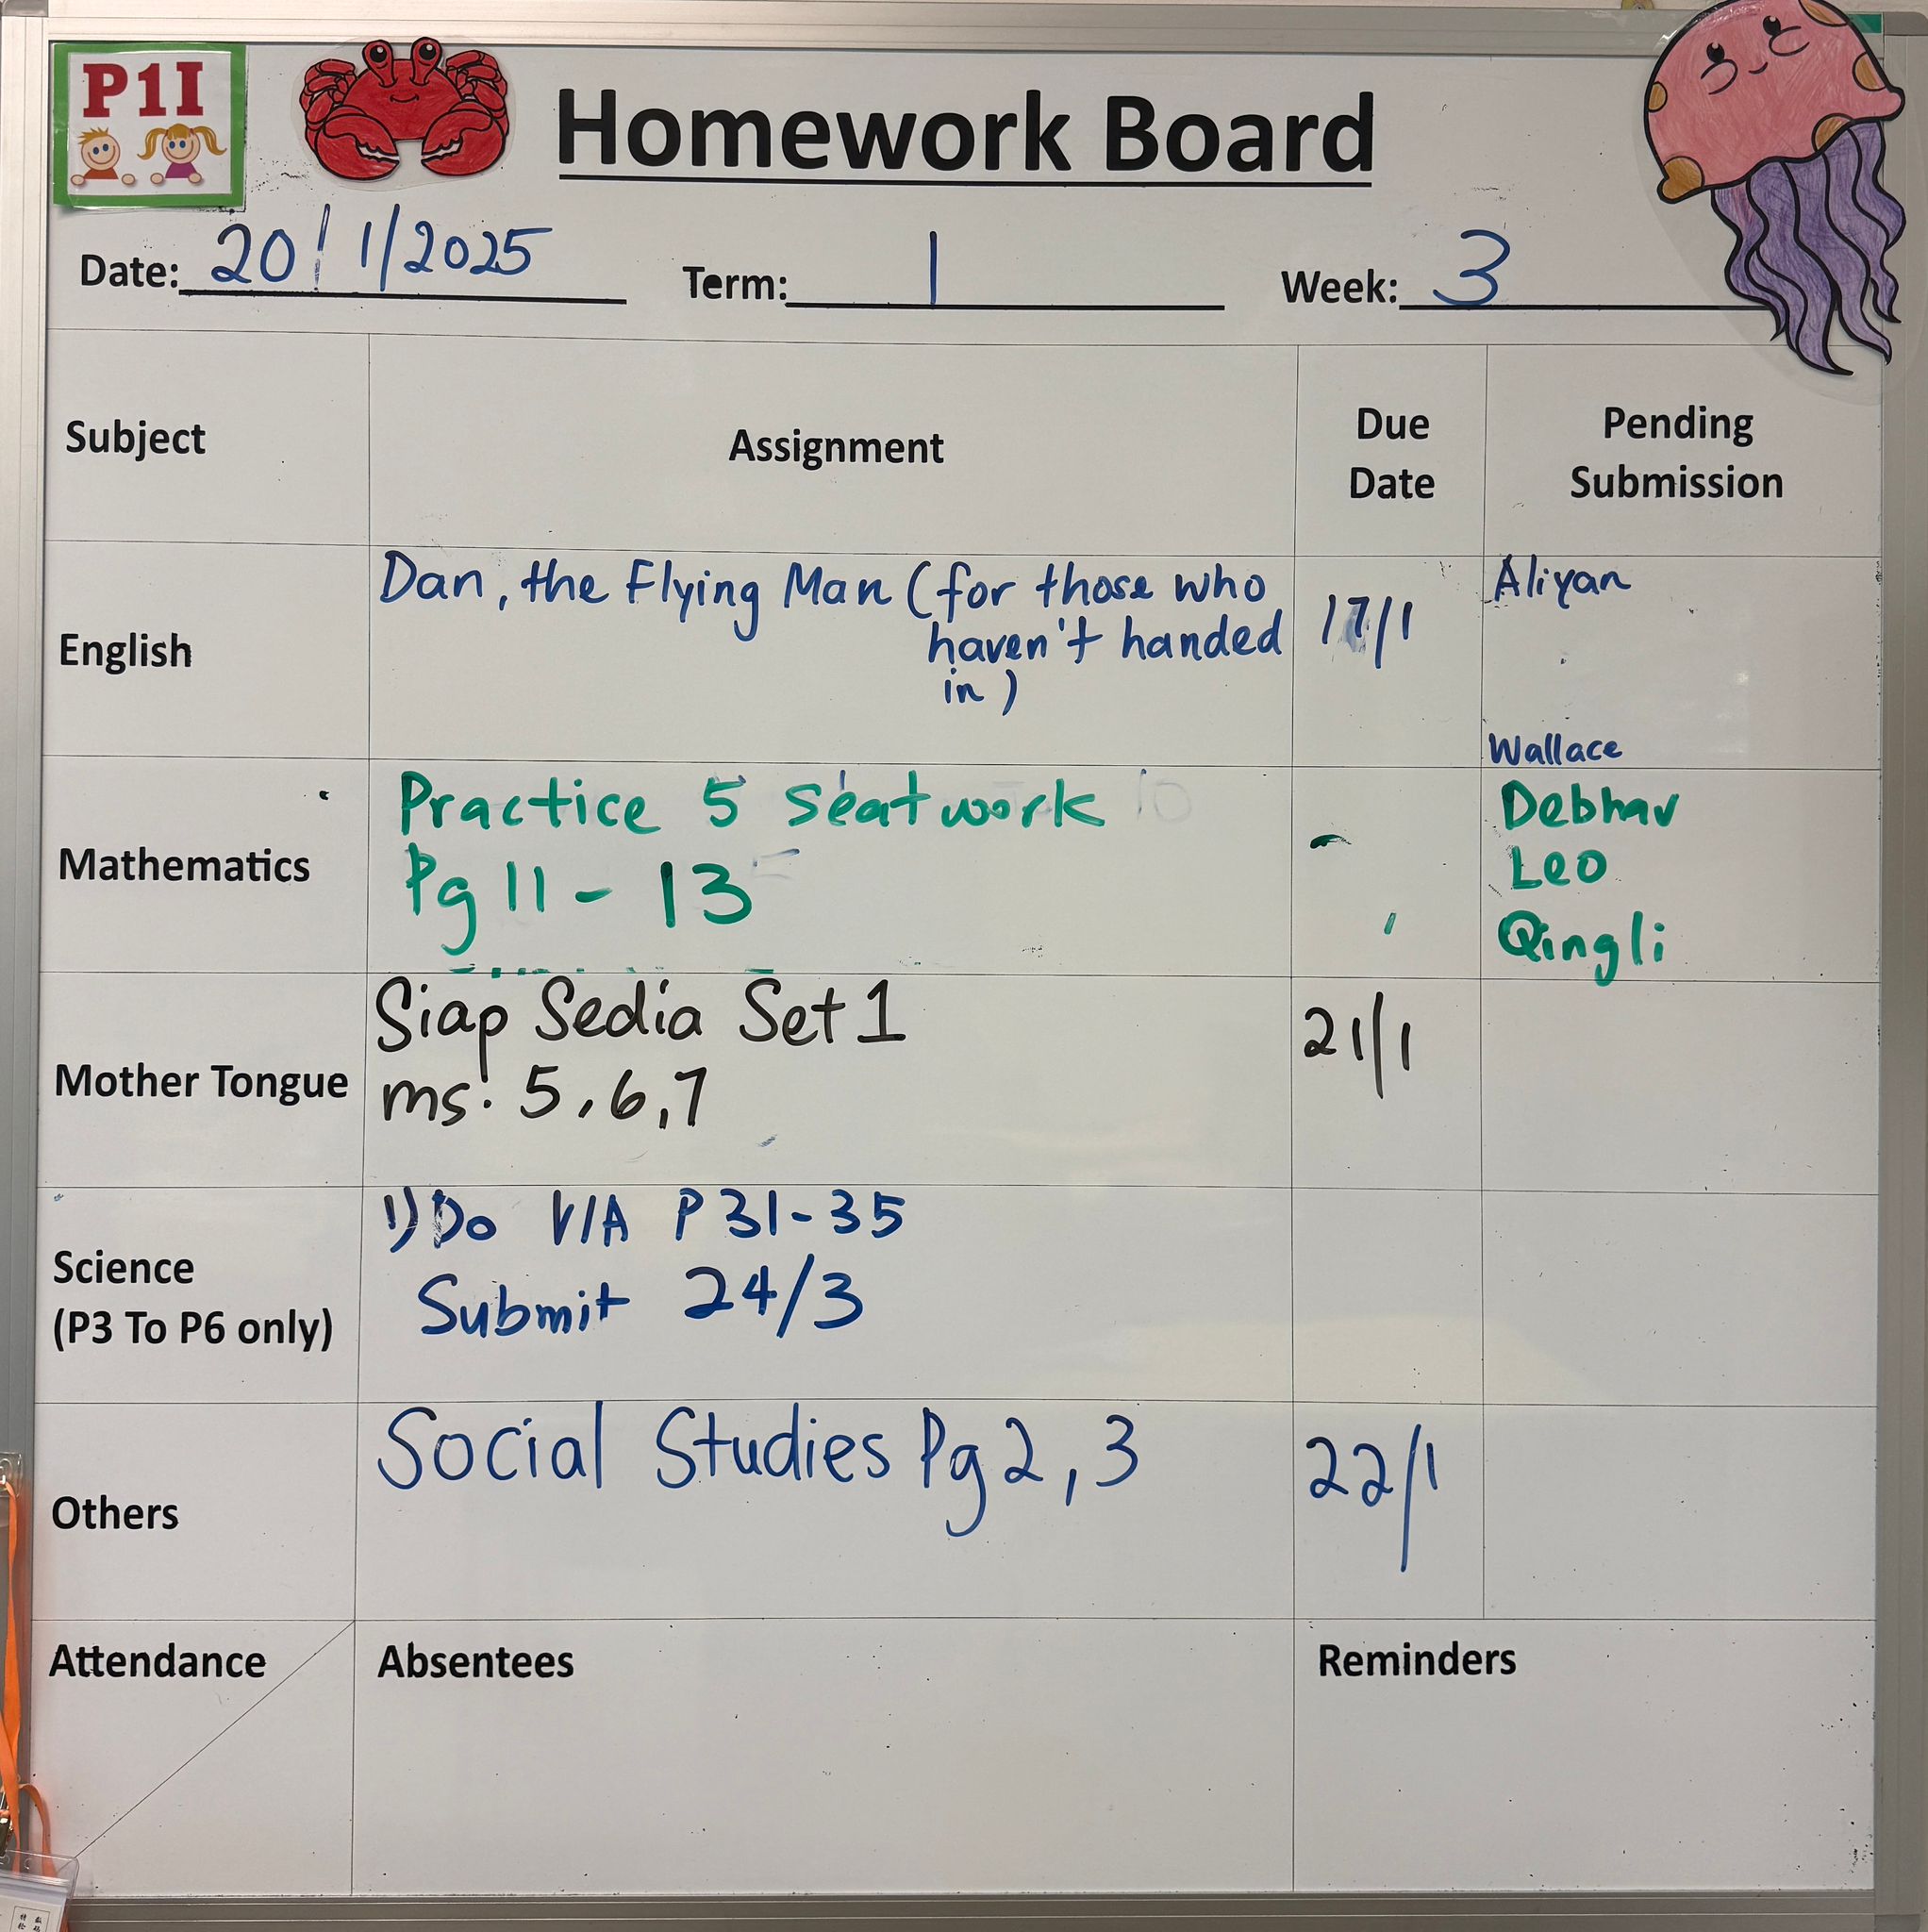 P1I
Homework Board
Date: 20/1/2025 Term: 1 Week: 3
Subject Assignment Due Date Pending Submission
English
Dan, the Flying Man (for those who
haven't handed
in)
17/1
Aliyan
Wallace
Mathematics
Practice 5 seatwork
Pg 11 - 13
-
Debhav
Leo
Qingli
Mother Tongue
Siap Sedia Set 1
ms: 5, 6, 7
21/1
Science
(P3 To P6 only)
1) Do V/A P 31-35
Submit 24/3
Others
Social Studies Pg 2, 3
22/1
Attendance Absentees Reminders